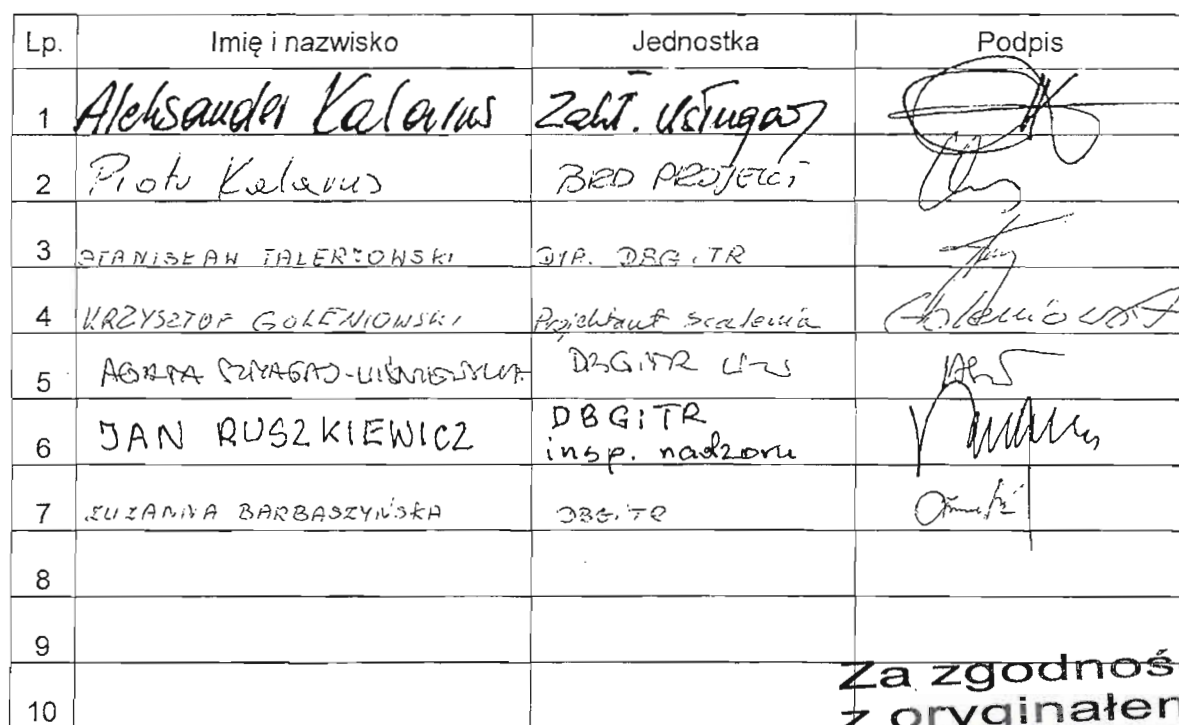 Lp. Imię i nazwisko Jednostka Podpis
1 Aleksander Kalarus Zakł. Usługowy
2 Piotr Kalarus
3 STANISŁAW TALERZOWSKI DYR. DBGiTR
4 KRZYSZTOF GOLENIOWSKI Projektant scalenia
5 AGATA DBGiTR
6 JAN RUSZKIEWICZ DBGiTR
insp. nadzoru
7 ZUZANNA BARBASZYŃSKA DBGiTR
8
9
10
Za zgodnoś
z oryginałem